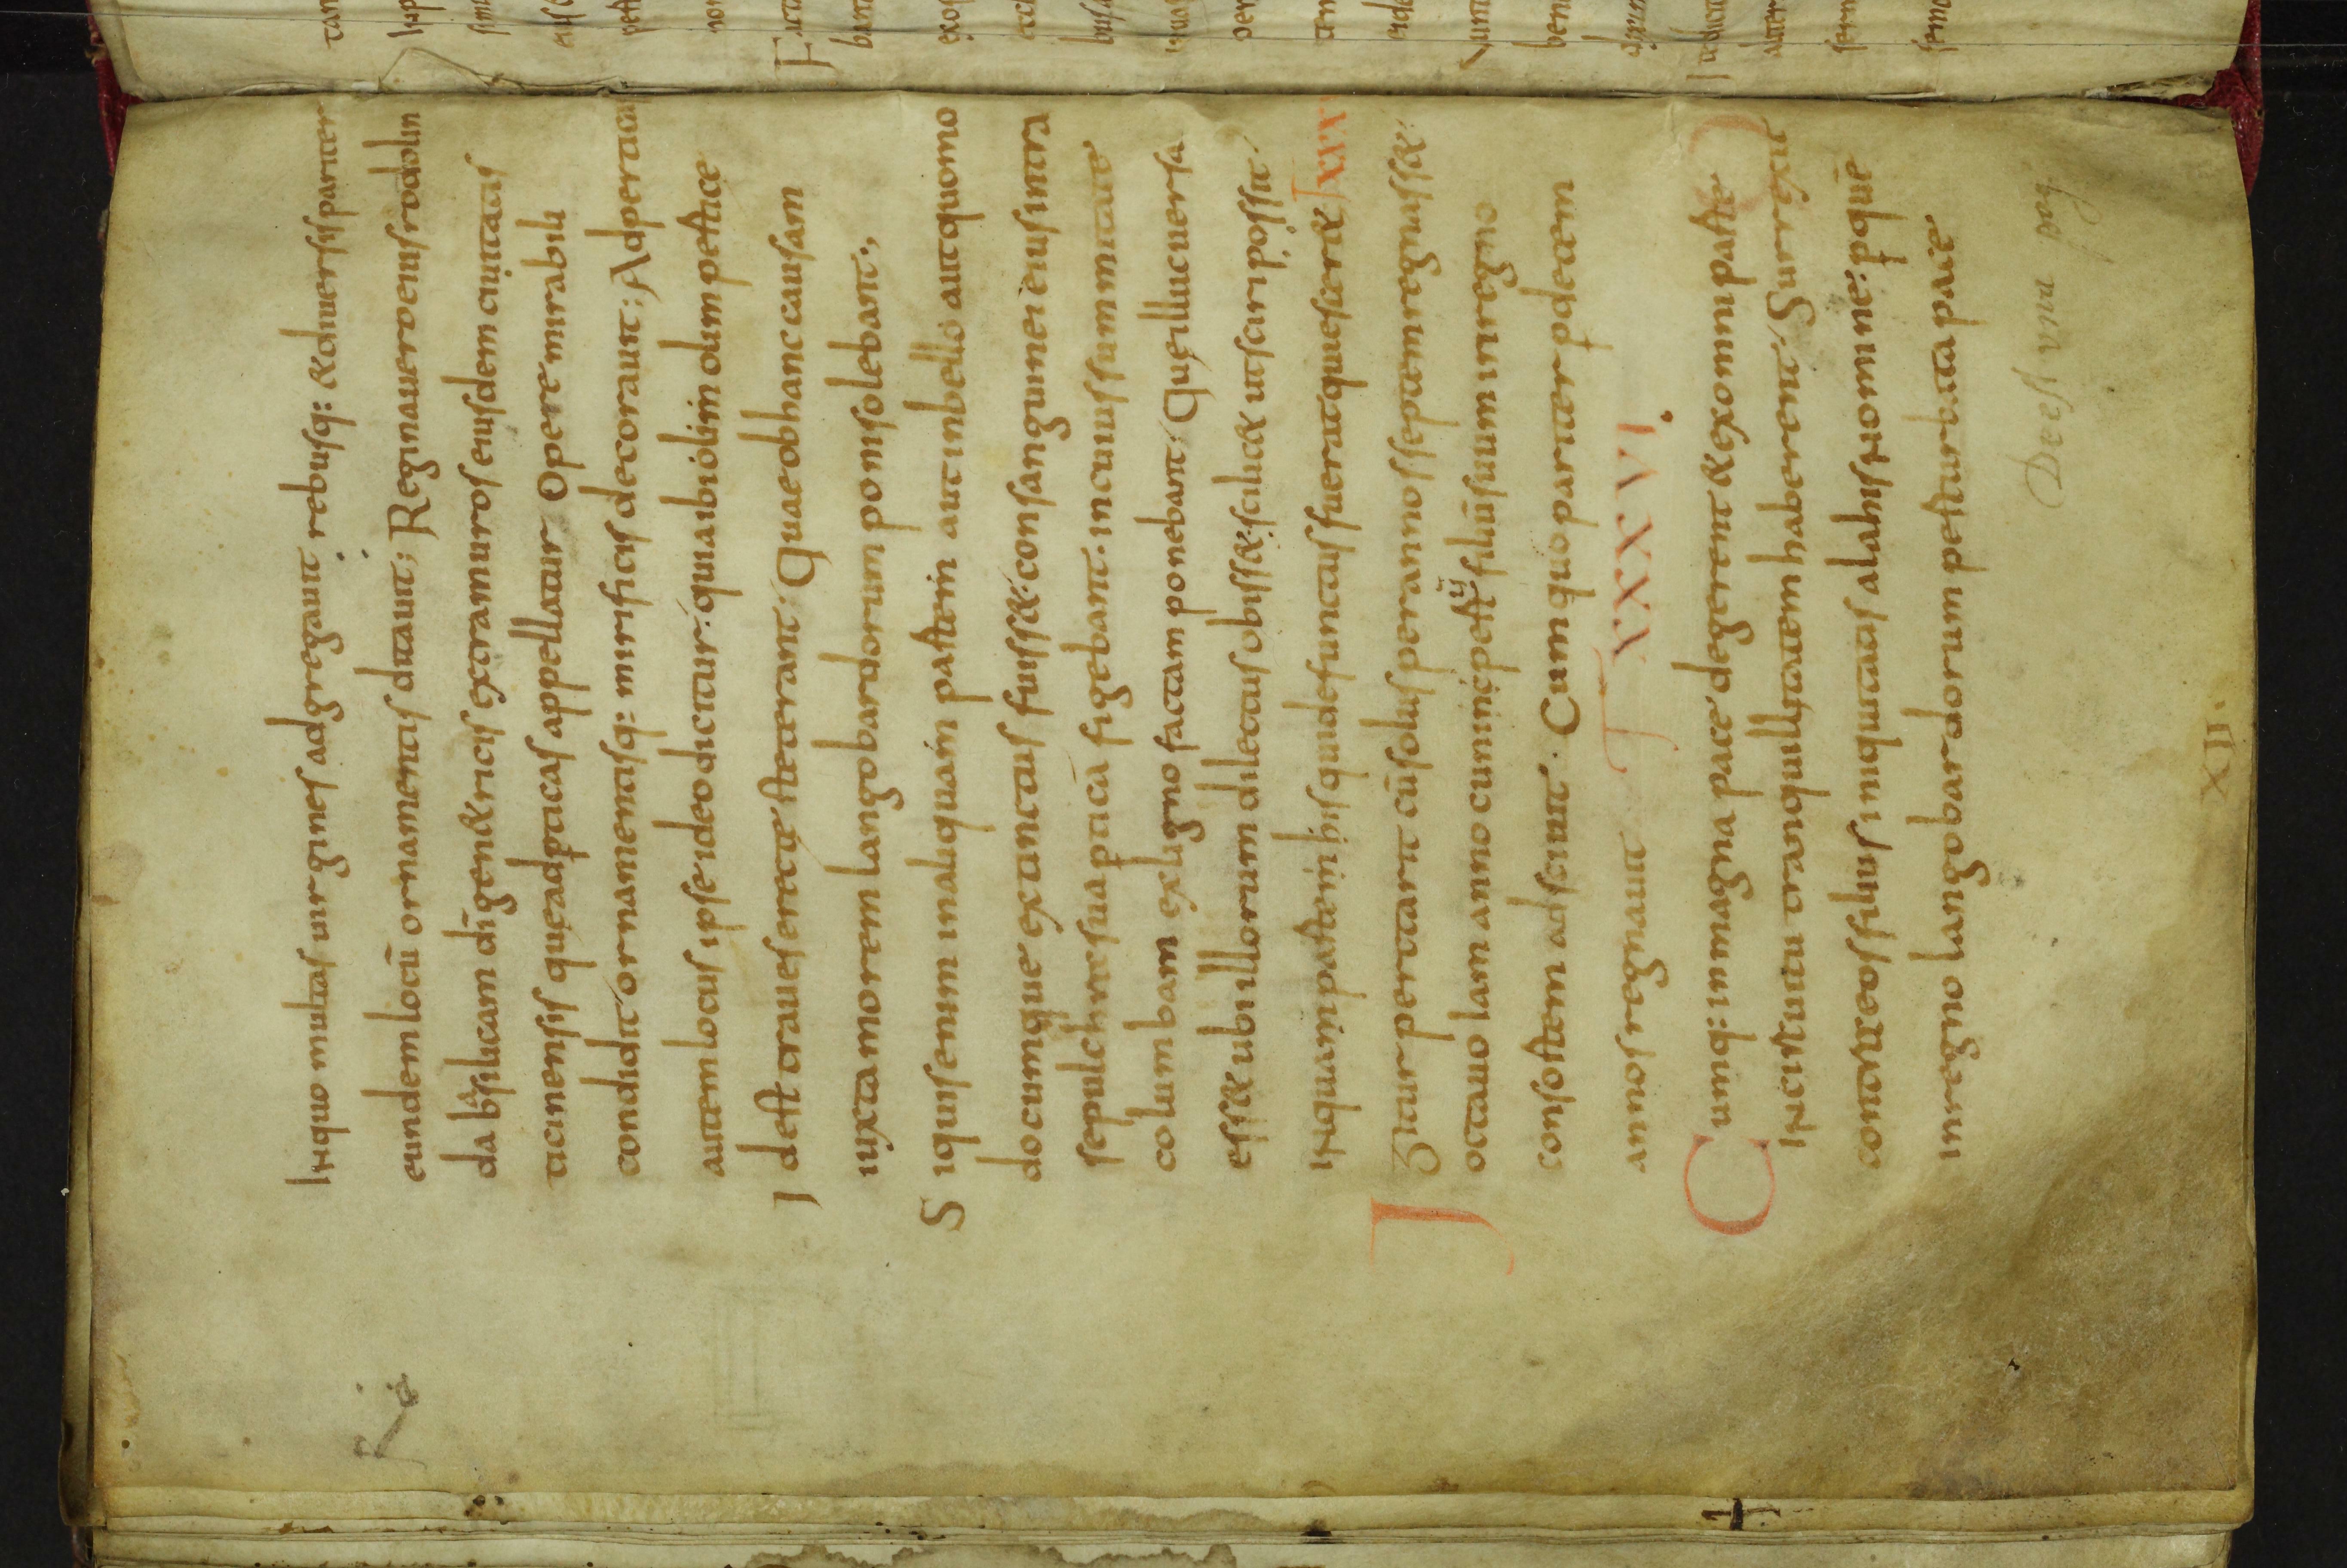 Inquo multas uirgines adgregauit rebusq: &diuersis pariter
eundem locū ornamentis ditauit; Regina uero eius rodolin
da basilicam dī gen&ricis extra muros eiusdem ciuitatis
ticinensis quę ad pticas appellatur Opere mirabili
condidit ornamentisq: mirificis decorauit: Ad pertica
autem locus ipse ideo dicitur: quia ibi olim pertice
Id est traues erecte steterant: Quae ob hanc causam
iuxta morem langobardorum poni solebant.,
Siquis enim in aliquam partem aut in bello aut quomo
documque extinctus fuiss&: consanguinei eius intra
sepulchra sua pticā figebant. in cuius summitate
columbam ex ligno factam ponebant: Quę illuc uersa
ess& ubi illorum dilectus obiss&. scilic& ut sciri possit
In quam partem his qui defunctus fuerat quiescer&
Igitur pertarit cū solus per annos septem regnass&:
octauo Iam anno cunincpertū filiū suum in regno
consortem adsciuit. Cum quo pariter p decem
annos regnauit XXXVI.
Cumq: in magna pace degerent & ex omni parte
In circuitu tranquillitatem haberent. Surrexit
contra eos filius iniquitatis alahis nomine: p quē
in regno langobardorum perturbata pace
Deest vna pag.
XII.